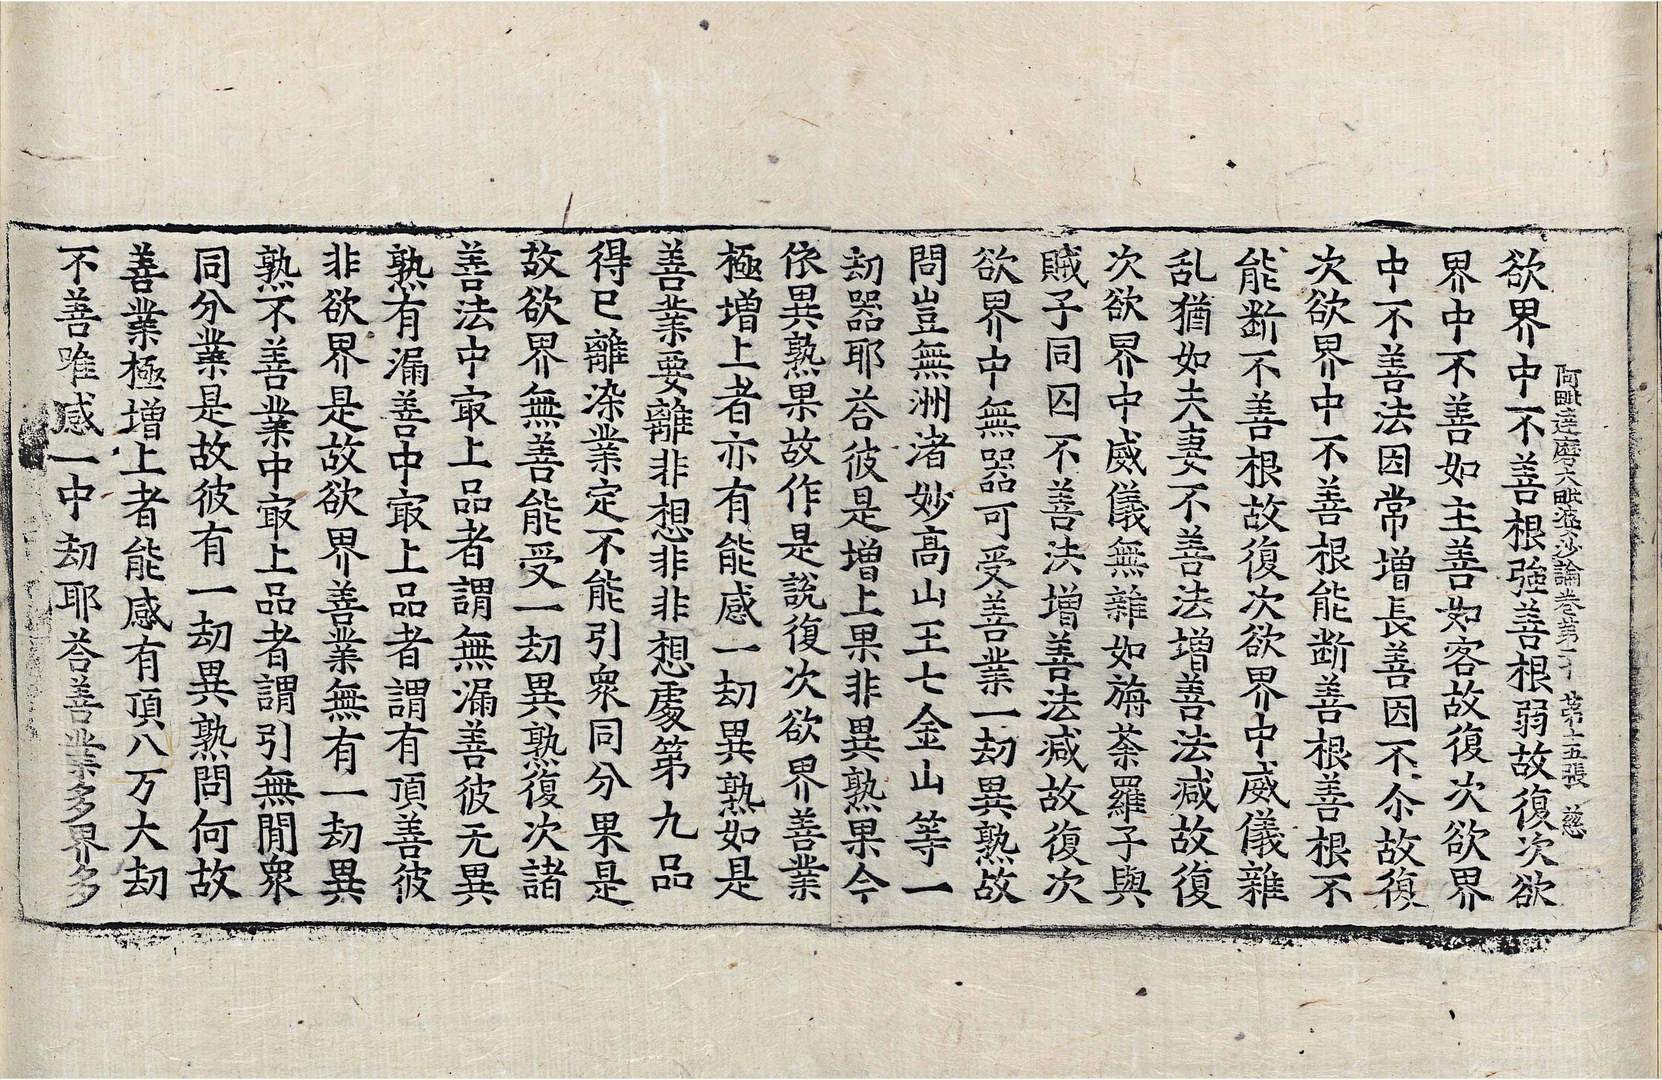 阿毗達磨大毗婆沙論卷第二十 第十五張 慈
欲界中不善根強善根弱故復次欲
界中不善如主善如客故復次欲界
中不善法因常增長善因不尒故復
次欲界中不善根能断善根善根不
能断不善根故復次欲界中威儀雜
乱猶如夫妻不善法增善法減故復
次欲界中威儀無雜如旃荼羅子與
賊子同囚不善法增善法減故復次
欲界中無器可受善業一劫異熟故
問豈無洲渚妙高山王七金山等一
劫器耶荅彼是增上果非異熟果今
依異熟果故作是說復次欲界善業
極增上者亦有能感一劫異熟如是
善業要離非想非非想處第九品
得已離染業定不能引衆同分果是
故欲界無善能受一劫異熟復次諸
善法中㝡上品者謂無漏善彼无異
熟有漏善中㝡上品者謂有頂善彼
非欲界是故欲界善業無有一劫異
熟不善業中㝡上品者謂引無間衆
同分業是故彼有一劫異熟問何故
善業極增上者能感有頂八万大劫
不善唯感一中劫耶荅善業多界多